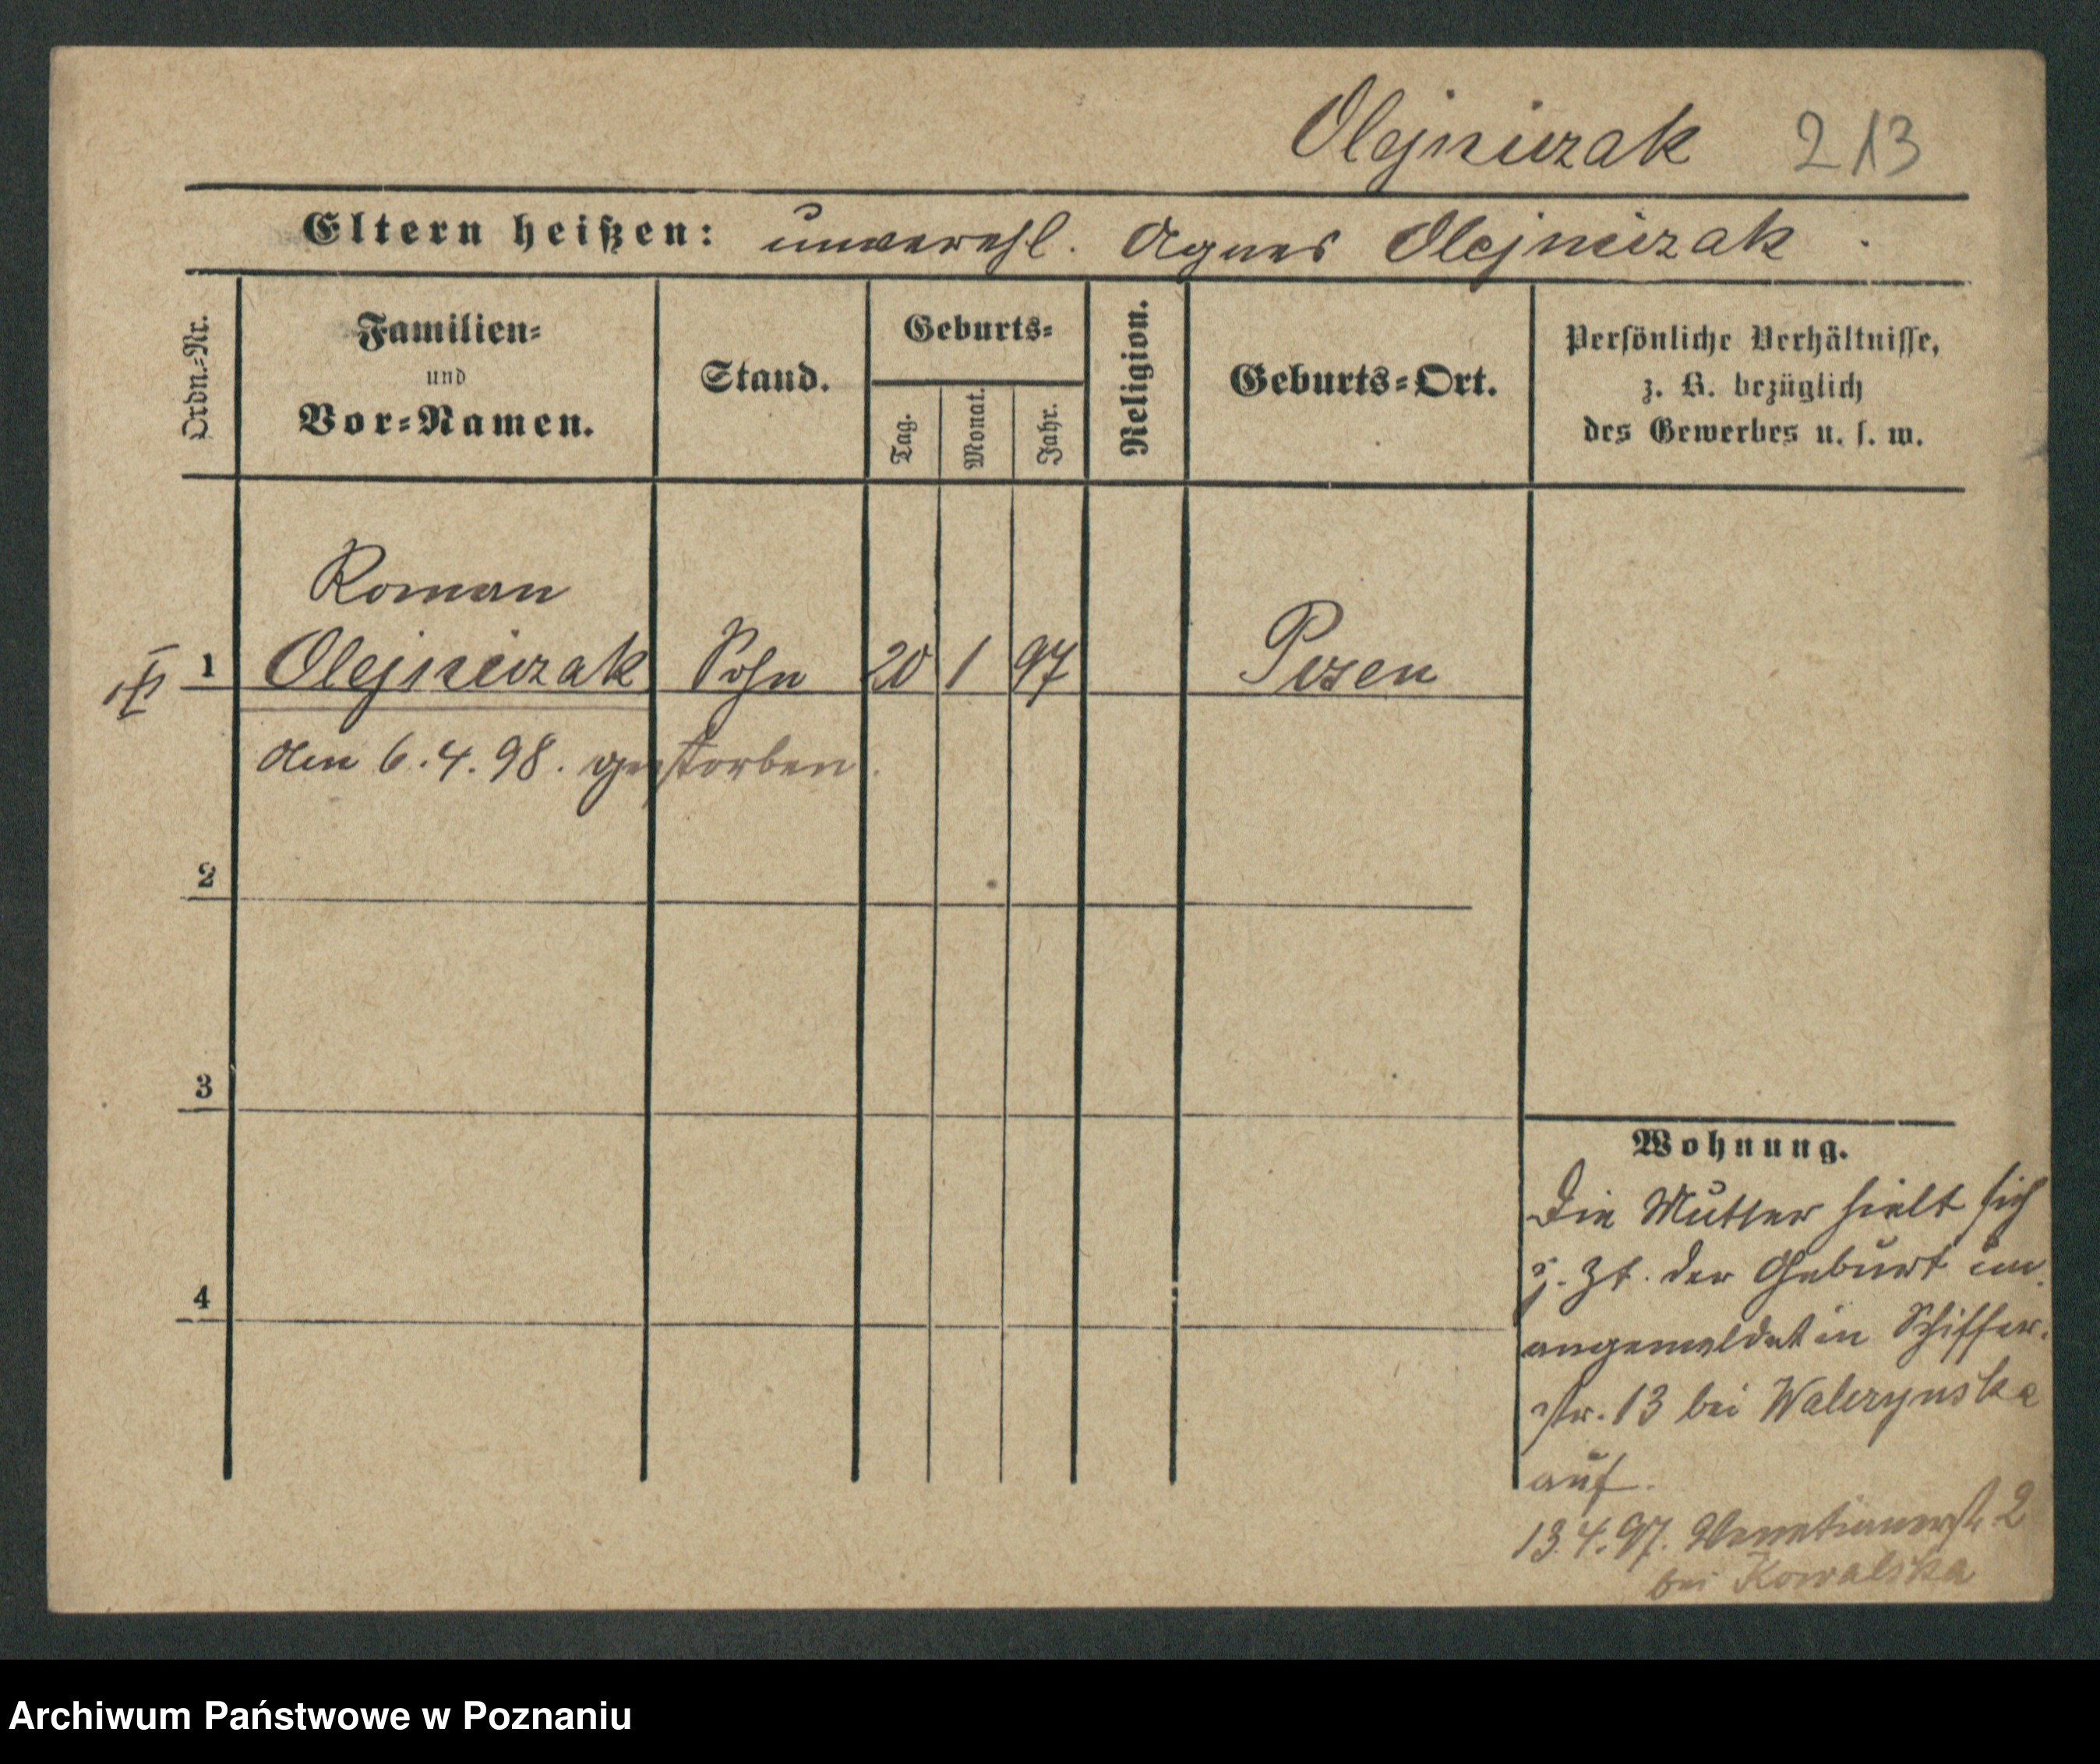 Olejniczak 213
Eltern heißen: unverehl. Agnes Olejniczak.
Ordn.-Nr.
Familien-
und
Vor-Namen.
Stand.
Geburts-
Tag.
Monat.
Jahr.
Religion.
Geburts-Ort.
Persönliche Verhältnisse,
z. B. bezüglich
des Gewerbes u. s. w.
Roman
1 Olejniczak Sohn 20 1 97 Posen
den 6.4.98. gestorben.
2
3
4
Wohnung.
Die Mutter hielt sich
z. Zt. der Geburt un-
angemeldet in Schiffer-
str. 13 bei Walczynska
auf.
13.4.97. Venetianerstr. 2
bei Kowalska
Archiwum Państwowe w Poznaniu